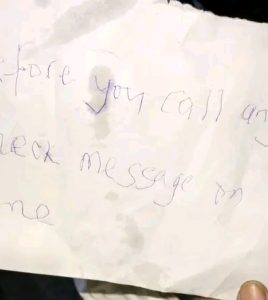 efore you call any
heck message on
ne